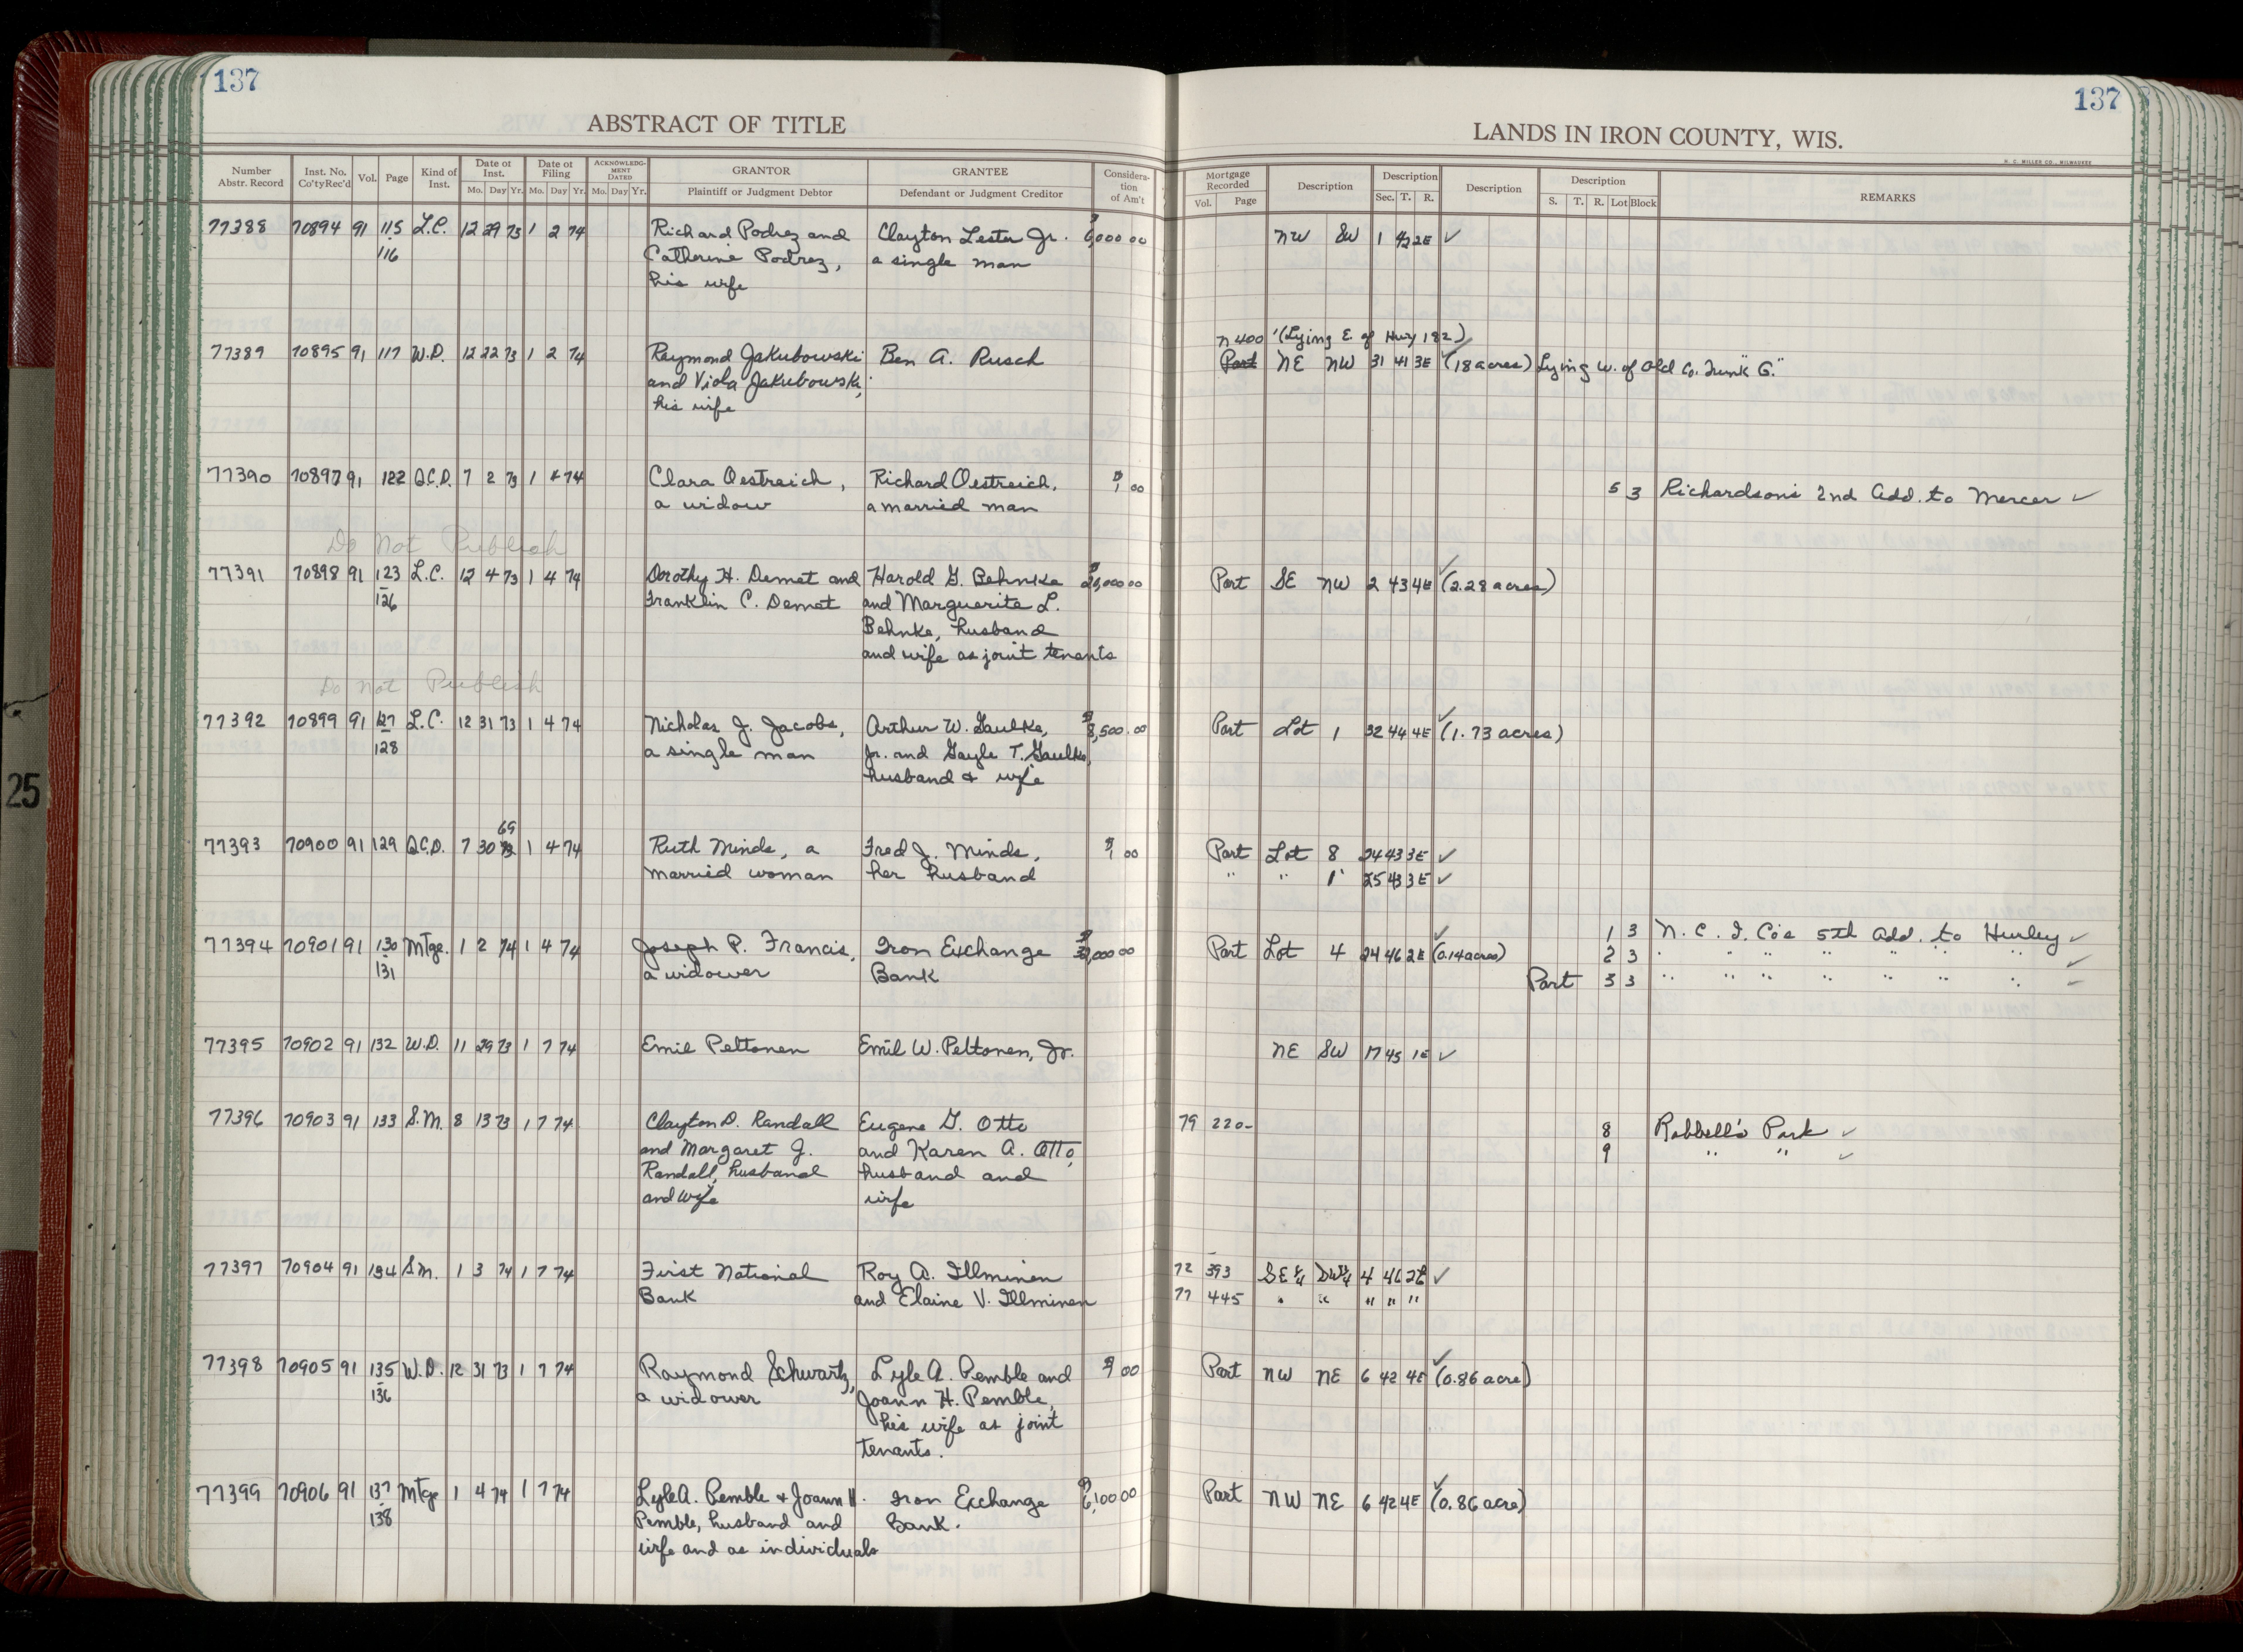 137
ABSTRACT OF TITLE
Number Abstr. Record | Inst. No. Co'ty Rec'd | Vol. | Page | Kind of Inst. | Date of Inst. Mo. Day Yr. | Date of Filing Mo. Day Yr. | ACKNOWLEDGMENT DATED Mo. Day Yr. | GRANTOR Plaintiff or Judgment Debtor | GRANTEE Defendant or Judgment Creditor | Consideration of Am't
77388 70894 91 115 L.C. 12 29 73 1 2 74 Richard Podrez and Clayton Lester Jr. $6,000 00
116 Catherine Podrez, a single man
his wife
77389 70895 91 117 W.D. 12 22 73 1 2 74 Raymond Jakubowski Ben A. Rusch
and Viola Jakubowski,
his wife
77390 70897 91 122 Q.C.D. 7 2 73 1 4 74 Clara Oestreich, Richard Oestreich, $1 00
a widow a married man
Do Not Publish
77391 70898 91 123 L.C. 12 4 73 1 4 74 Dorothy H. Demet and Harold G. Behnke 00
126 Franklin C. Demet and Marguerite L.
Behnke, husband
and wife as joint tenants
Do Not Publish
77392 70899 91 127 L.C. 12 31 73 1 4 74 Nicholas J. Jacobs, Arthur W. Gaulke, $8,500.00
128 a single man Jr. and Gayle T. Gaulke,
husband & wife
69
77393 70900 91 129 Q.C.D. 7 30 73 1 4 74 Ruth Minds, a Fred J. Minds, $1 00
married woman her husband
77394 70901 91 130 Mtge. 1 2 74 1 4 74 Joseph P. Francis, Iron Exchange 00
131 a widower Bank
77395 70902 91 132 W.D. 11 29 73 1 7 74 Emil Peltonen Emil W. Peltonen, Jr.
77396 70903 91 133 S.M. 8 13 73 1 7 74 Clayton D. Randall Eugene G. Otto
and Margaret J. and Karen A. Otto,
Randall, husband husband and
and wife wife
77397 70904 91 134 S.M. 1 3 74 1 7 74 First National Roy A. Illminen
Bank and Elaine V. Illminen
77398 70905 91 135 W.D. 12 31 73 1 7 74 Raymond Schwartz, Lyle A. Pemble and $1 00
136 a widower Joann H. Pemble,
his wife as joint
tenants.
77399 70906 91 137 Mtge 1 4 74 1 7 74 Lyle A. Pemble & Joann H. Iron Exchange $6,100 00
138 Pemble, husband and Bank.
wife and as individuals
25
137
LANDS IN IRON COUNTY, WIS.
H. C. MILLER CO., MILWAUKEE
Mortgage Recorded Vol. Page | Description | Description Sec. T. R. | Description | Description S. T. R. Lot Block | REMARKS
NW SW 1 42 2E ✓
N 400' (Lying E. of Hwy 182)
Part NE NW 31 41 3E ✓ (18 acres) Lying W. of Old Co. Trunk "G."
5 3 Richardson's 2nd Add. to Mercer ✓
Part SE NW 2 43 4E ✓ (2.28 acres)
Part Lot 1 32 44 4E ✓ (1.73 acres)
Part Lot 8 24 43 3E ✓
" " 1 25 43 3E ✓
1 3 N. C. I. Co's 5th Add. to Hurley ✓
Part Lot 4 24 46 2E ✓ (0.14 acres) 2 3 " " " " " " " ✓
Part 3 3 " " " " " " " ✓
NE SW 17 45 1E ✓
79 220- 8 Robbell's Park ✓
9 " " ✓
72 393 SE¼ SW¼ 4 46 2E ✓
77 445 " " " " "
Part NW NE 6 42 4E ✓ (0.86 acre)
Part NW NE 6 42 4E ✓ (0.86 acre)